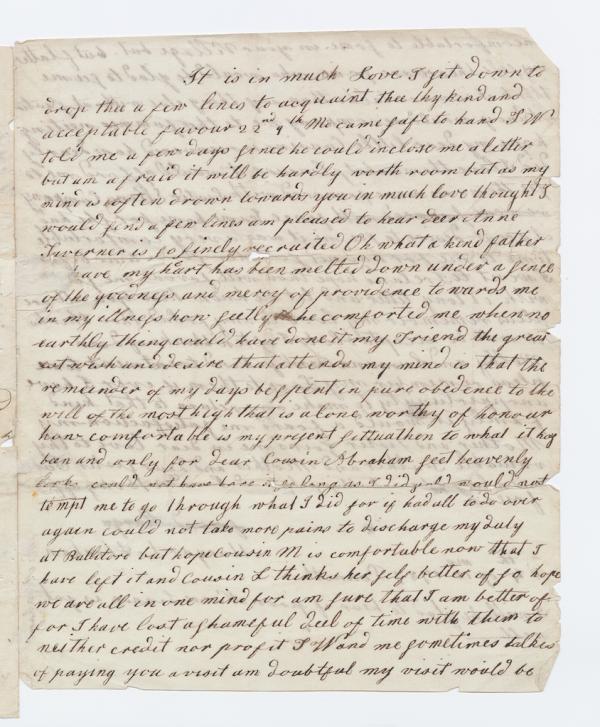 It is in much Love I sit down to
drop thee a few lines to acquaint thee thy kind and
acceptable favour 22nd 9th Mo came safe to hand I W
told me a few days since he could inclose me a letter
but am afraid it will be hardly worth room but as my
mind is often drown towards you in much love thought I
would send a few lines am pleased to hear dear Anne
Taverner is so finely recruited Oh what a kind father
have my hart has been melted down under a sence
of the goodness and mercy of providence towards me
in my illness how seetly he comforted me when no
earthly thing could have done it my Friend the great
est wish and desire that attends my mind is that the
remeinder of my days be spent in pure obedence to the
will of the most high that is alone worthy of honour
how comfortable is my present sittuathen to what it hay
been and only for dear Cousin Abraham feel heavenly
could not have bore it so long as I did gold would not
tempt me to go through what I did for if had all to do over
again could not take more pains to discharge my duty
at Ballitore but hope Cousin M is comfortable now that I
have left it and Cousin L thinks her self better of so hope
we are all in one mind for am sure that I am better of
for I have lost a shameful deel of time with them to
neither credit nor profit I W and me sometimes talkes
of paying you a visit am doubtful my visit would be